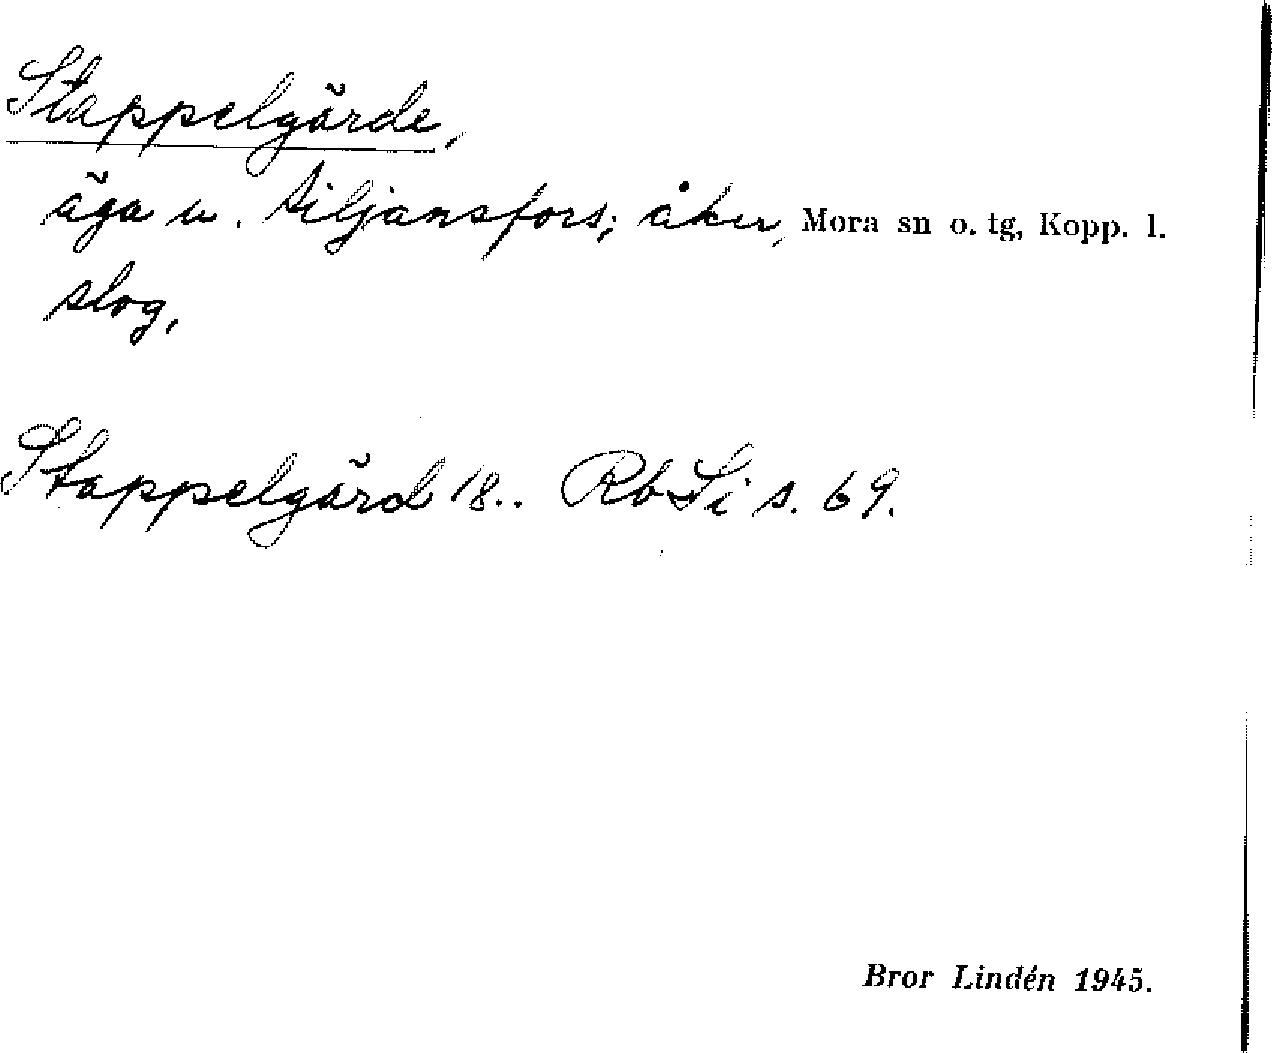 Stappelgärde,
äga u. Siljansfors; åker, Mora sn o. tg, Kopp. l.
slog,
Stappelgärd 18.. Rb Si s. 69.
Bror Lindén 1945.